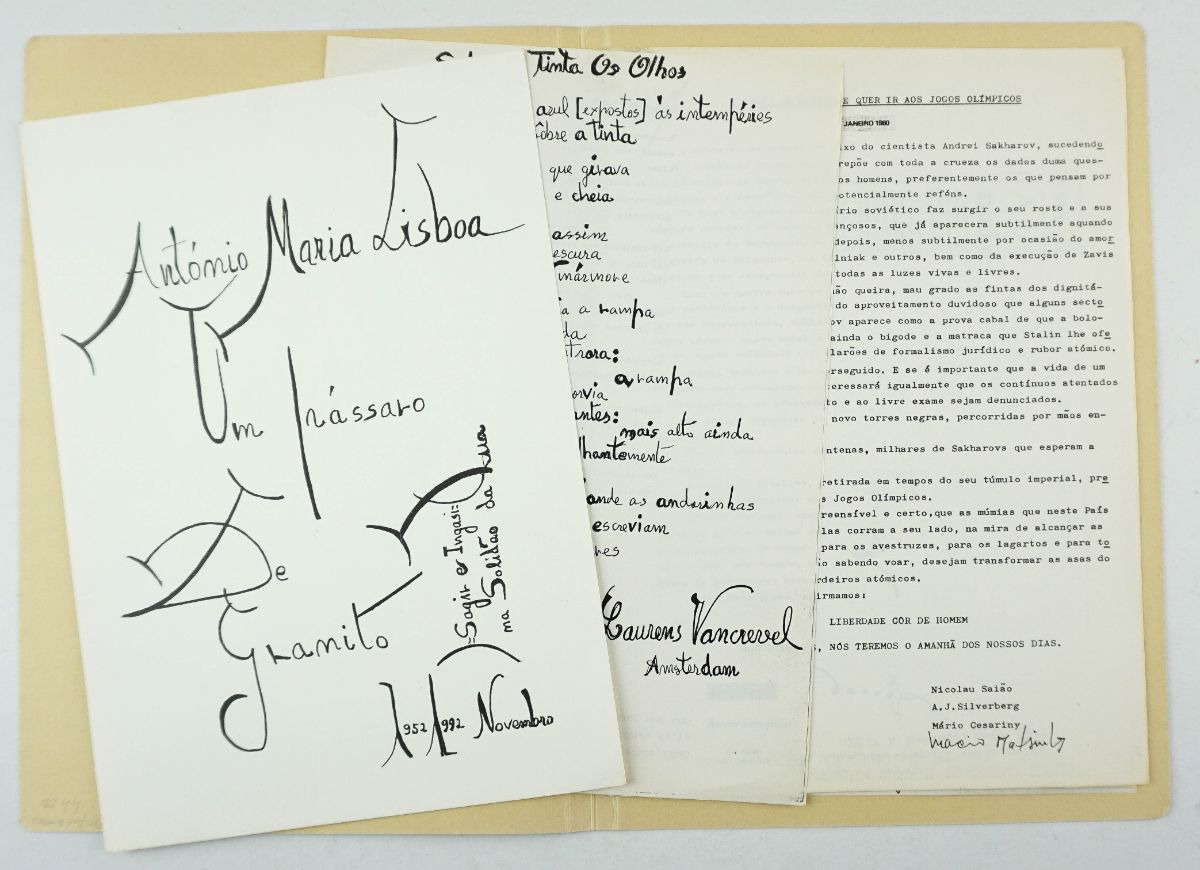 António Maria Lisboa
Um Pássaro
De
Granito
=Sagir e Ingasi=
ma Solidão da Rua
1952 1992 Novembro
Tinta Os Olhos
azul [expostos] às intempéries
sôbre a tinta
que girava
e cheia
assim
escura
mármore
a rampa
da
trora:
a rampa
orvia
antes:
mais alto ainda
lhantemente
ande as andorinhas
escreviam
res
Laurens Vancrevel
Amsterdam
E QUER IR AOS JOGOS OLÍMPICOS
JANEIRO 1980
xo do cientista Andrei Sakharov, sucedendo
repõe com toda a crueza os dados duma ques-
os homens, preferentemente os que pensam por
otencialmente reféns.
rio soviético faz surgir o seu rosto e a sua
nçosos, que já aparecera subtilmente aquando
depois, menos subtilmente por ocasião do amor
lniak e outros, bem como da execução de Zavis
todas as luzes vivas e livres.
ão queira, mau grado as fintas dos dignitá-
do aproveitamento duvidoso que alguns secto
ov aparece como a prova cabal de que a bolo-
ainda o bigode e a matraca que Stalin lhe ofe
larões de formalismo jurídico e rubor atómico.
rseguido. E se é importante que a vida de um
eressará igualmente que os contínuos atentados
to e ao livre exame sejam denunciados.
novo torres negras, percorridas por mãos en-
ntenas, milhares de Sakharovs que esperam a
retirada em tempos do seu túmulo imperial, pre
s Jogos Olímpicos.
reensível e certo,que as múmias que neste País
las corram a seu lado, na mira de alcançar as
para os avestruzes, para os lagartos e para to
o sabendo voar, desejam transformar as asas do
rdeiros atómicos.
irmamos:
LIBERDADE CÔR DE HOMEM
, NÓS TEREMOS O AMANHÃ DOS NOSSOS DIAS.
Nicolau Saião
A.J.Silverberg
Mário Cesariny